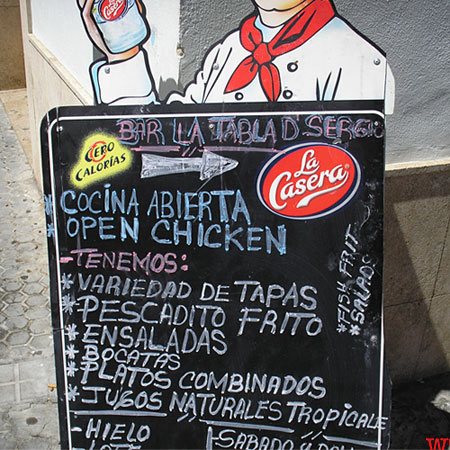 La Casera
BAR LA TABLA D SERGIO
CERO
CALORÍAS
La
Casera
*COCINA ABIERTA
*OPEN CHICKEN
-TENEMOS:
*VARIEDAD DE TAPAS
*PESCADITO FRITO
*ENSALADAS
*BOCATAS
*PLATOS COMBINADOS
*JUGOS NATURALES TROPICALE
*FISH FRIT
*SALADS
-HIELO
-SABADO Y